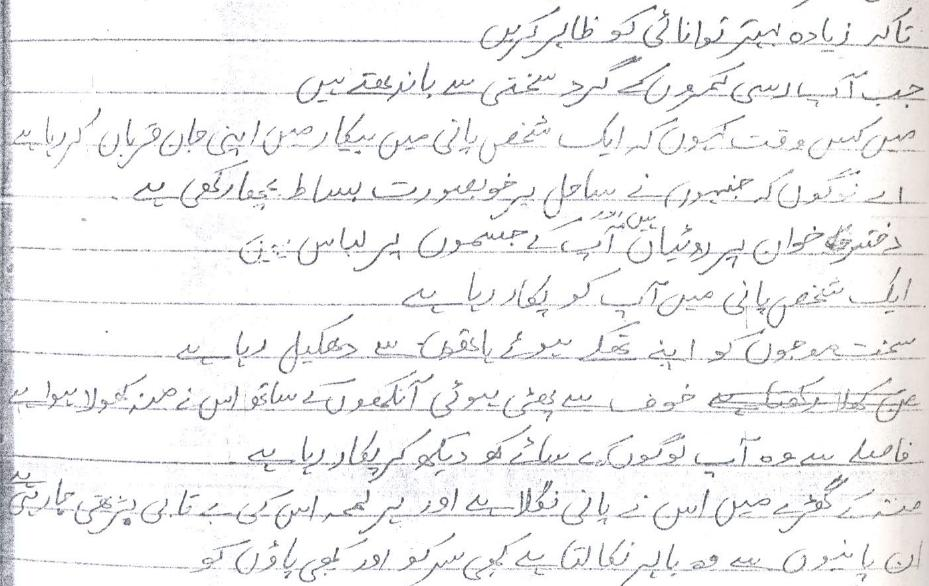 تاکہ زیادہ بہتر توانائی کو ظاہر کریں
جب آپ رسی کمروں کے گرد سختی سے باندھتے ہیں
میں کس وقت کہوں کہ ایک شخص پانی میں بیکار میں اپنی جان قربان کر رہا ہے
اے لوگوں کہ جنہوں نے ساحل پر خوبصورت بساط بچھا رکھی ہے
دختر خوان پر روٹیاں ہیں اور آپ کے جسموں پر لباس ہیں
ایک شخص پانی میں آپ کو پکار رہا ہے
سخت موجوں کو اپنے تھکے ہوئے ہاتھوں سے دھکیل رہا ہے
خوف سے پھٹی ہوئی آنکھوں کے ساتھ اس نے منہ کھولا ہوا ہے
فاصلے سے وہ آپ لوگوں کے سائے کو دیکھ کر پکار رہا ہے
منہ کے گھڑے میں اس نے پانی نگلا ہے اور ہر لمحہ اس کی بے تابی بڑھتی جا رہی ہے
ان پانیوں سے وہ باہر نکالتا ہے کبھی سر کو اور کبھی پاؤں کو